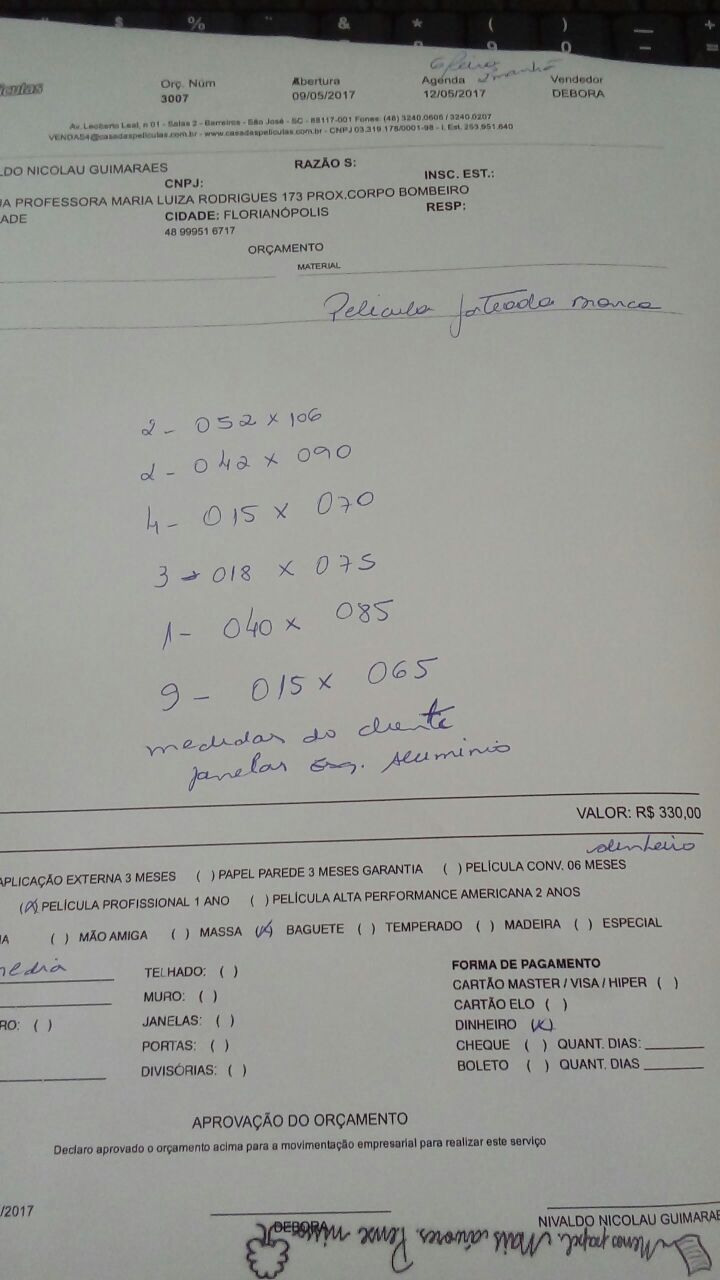 Orç. Núm Abertura Agenda Vendedor
3007 09/05/2017 12/05/2017 DEBORA
manhã
Av. Leoberto Leal, n 01 - Salas 2 - Barreiros - São José - SC - 88117-001 Fones: (48) 3240.0605 / 3240.0207
VENDAS4@casadaspeliculas.com.br - www.casadaspeliculas.com.br - CNPJ 03.319.178/0001-98 - I. Est. 253.951.640
LDO NICOLAU GUIMARAES RAZÃO S:
CNPJ: INSC. EST.:
UA PROFESSORA MARIA LUIZA RODRIGUES 173 PROX.CORPO BOMBEIRO
ADE CIDADE: FLORIANÓPOLIS RESP:
48 99951 6717
ORÇAMENTO
MATERIAL
Pelicula jateada branca
2 - 052 x 106
2 - 042 x 090
4 - 015 x 070
3 - 018 x 075
1 - 040 x 085
9 - 015 x 065
medidas do cliente
janelas esq. aluminio
VALOR: R$ 330,00
dinheiro
APLICAÇÃO EXTERNA 3 MESES ( ) PAPEL PAREDE 3 MESES GARANTIA ( ) PELÍCULA CONV. 06 MESES
(X) PELÍCULA PROFISSIONAL 1 ANO ( ) PELÍCULA ALTA PERFORMANCE AMERICANA 2 ANOS
IA ( ) MÃO AMIGA ( ) MASSA (X) BAGUETE ( ) TEMPERADO ( ) MADEIRA ( ) ESPECIAL
media TELHADO: ( ) FORMA DE PAGAMENTO
CARTÃO MASTER / VISA / HIPER ( )
MURO: ( ) CARTÃO ELO ( )
RO: ( ) JANELAS: ( ) DINHEIRO (X)
PORTAS: ( ) CHEQUE ( ) QUANT. DIAS:
DIVISÓRIAS: ( ) BOLETO ( ) QUANT. DIAS
APROVAÇÃO DO ORÇAMENTO
Declaro aprovado o orçamento acima para a movimentação empresarial para realizar este serviço
/2017
DEBORA NIVALDO NICOLAU GUIMARAE
Menos papel. Mais árvores. Pense nisso.